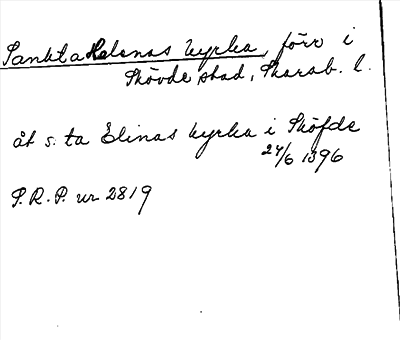 Sankta Helenas kyrka, förr i
Skövde stad, Skarab. l.
åt s. ta Elinas kyrka i Sköfde
24/6 1396
S.R.P. nr 2819